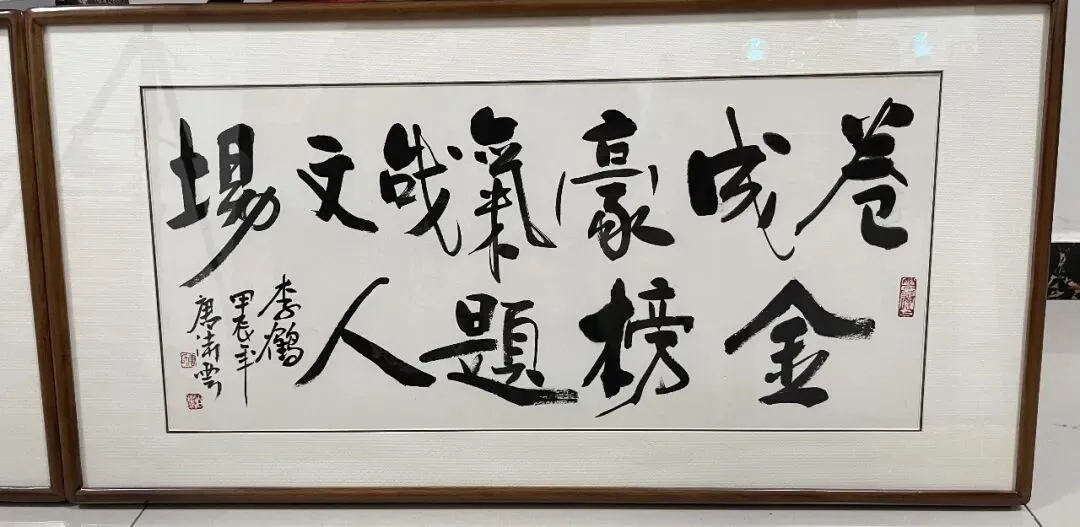 卷成豪氣战文場
金榜題人
李鶴
甲辰年
唐雲